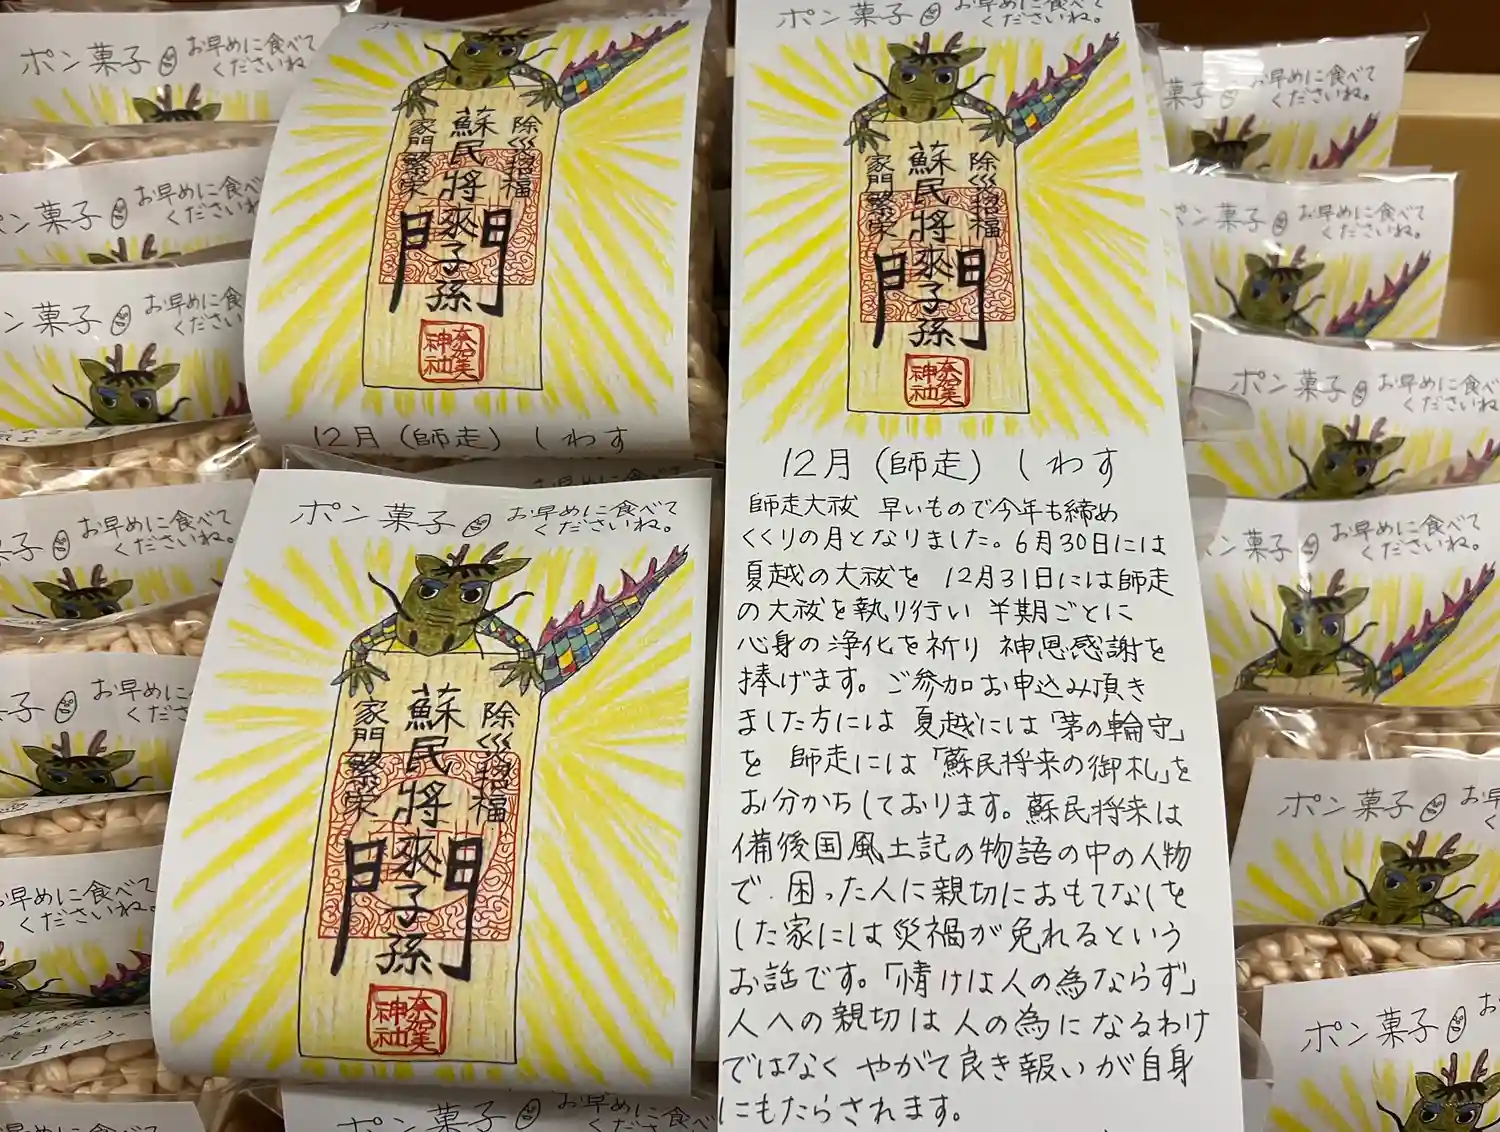 ポン菓子 お早めに食べて
くださいね。
除災招福
蘇民將來子孫
門
家門繁栄
奈加美
神社
12月（師走）しわす
師走大祓 早いもので今年も締め
くくりの月となりました。6月30日には
夏越の大祓を 12月31日には師走
の大祓を執り行い 半期ごとに
心身の浄化を祈り 神恩感謝を
捧げます。ご参加お申込み頂き
ました方には 夏越には「茅の輪守」
を 師走には「蘇民将来の御札」を
お分かちしております。蘇民将来は
備後国風土記の物語の中の人物
で、困った人に親切におもてなしを
した家には災禍が免れるという
お話です。「情けは人の為ならず」
人への親切は人の為になるわけ
ではなく やがて良き報いが自身
にもたらされます。
ポン菓子 お早めに食べて
くださいね。
除災招福
蘇民將來子孫
門
家門繁栄
奈加美
神社
除災招福
蘇民將來子孫
門
家門繁栄
奈加美
神社
12月（師走）しわす
ポン菓子 お早めに食べて
くださいね
ン菓子 お早めに食べて
くださいね。
お早めに食べて
くださいね。
菓子 お早めに食べて
くださいね。
ポン菓子 お早めに食べて
くださいね。
ン菓子 お早めに食べて
くださいね。
ポン菓子
ポン菓子